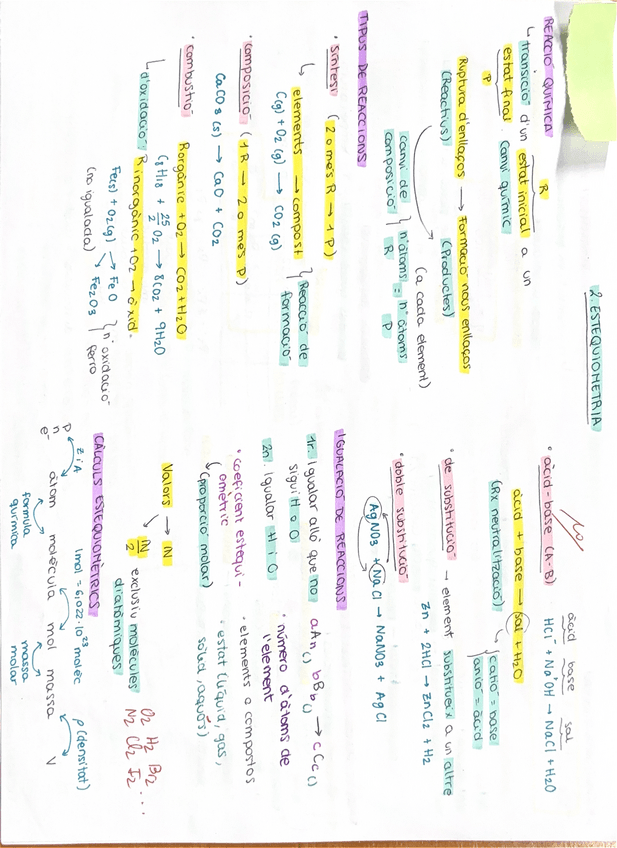 2. ESTEQUIOMETRIA
REACCIÓ QUÍMICA
↳ transició d'un estat inicial a un
R
estat final. Canvi químic
P
Ruptura d'enllaços → Formació nous enllaços
(Reactius) (Productes)
canvi de composició } nº àtoms R = nº àtoms P (a cada element)
TIPUS DE REACCIONS
• síntesi (2 o més R → 1 P)
↳ elements → compost } Reacció de formació
C(g) + O2 (g) → CO2 (g)
• composició (1R → 2 o més P)
CaCO3 (s) → CaO + CO2
• combustió Rorgànic + O2 → CO2 + H2O
C8H18 + 25/2 O2 → 8CO2 + 9H2O
↳ d'oxidació: R inorgànic + O2 → òxid.
Fe(s) + O2(g) → FeO
→ Fe2O3 } nº oxidació ferro
(no igualada)
• àcid-base (A-B)
àcid base sal
HCl + NaOH → NaCl + H2O
àcid + base → sal + H2O
(Rx neutralització) catió = base
anió = àcid
• de substitució → element substitueix a un altre
Zn + 2HCl → ZnCl2 + H2
• doble substitució
AgNO3 + NaCl → NaNO3 + AgCl
IGUALACIÓ DE REACCIONS
1r. Igualar allò que no sigui H o O
2n. Igualar H i O
aA n() bB b() → cC c()
• número d'àtoms de l'element
• coeficient estequiomètric
(proporció molar)
• elements o compostos
• estat (líquid, gas, sòlid, aquós)
Valors → IN
IN/2 exclusiu molècules diatòmiques
O2 H2 Br2
N2 Cl2 I2 ...
CÀLCULS ESTEQUIOMÈTRICS
1mol = 6,022·10^23 molèc
ρ (densitat)
p
n
e-
Z i A
àtom molècula mol massa V
fórmula química
massa molar